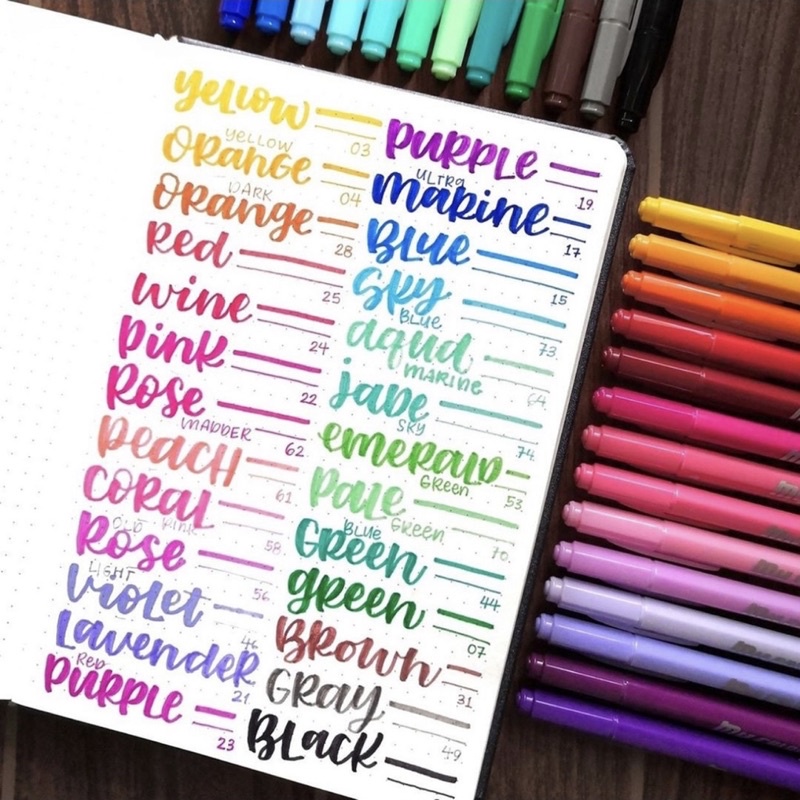 Yellow 03
YELLOW
Orange 04
DARK
Orange 28
Red 25
wine 24
Pink 22
Rose
MADDER 62
Peach 61
Coral 58
OLD PINK
Rose 56
LIGHT
Violet 46
Lavender 21
Red
Purple 23
Purple 19
ULTRA
Marine 17
Blue 15
Sky
BLUE 73
aqua
MARINE 64
Jade
SKY 74
emerald
Green 53
Pale
Green 70
BLUE
Green 44
green 07
Brown 31
Gray 49
Black